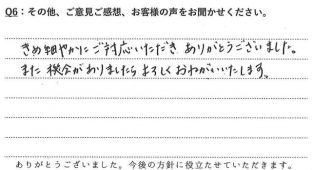 Q6：その他、ご意見ご感想、お客様の声をお聞かせください。
きめ細やかにご対応いただき ありがとうございました。
また 機会がありましたら よろしくおねがいいたします。
ありがとうございました。今後の方針に役立たせていただきます。